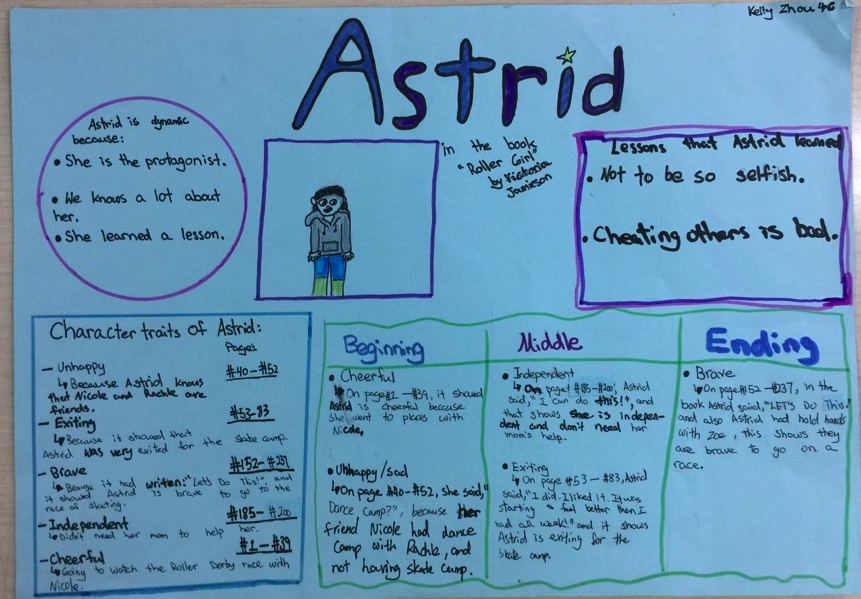 Kelly Zhou 4-6
Astrid
in the book
"Roller Girl"
by Victoria
Jamieson
Astrid is dynamic
because:
• She is the protagonist.
• We knows a lot about
her.
• She learned a lesson.
Lessons that Astrid learned
• Not to be so selfish.
• Cheating others is bad.
Character traits of Astrid:
Pages
- Unhappy
#40-#52
↳ Because Astrid knows
that Nicole and Rachle are
friends.
- Exiting
#53-83
↳ Because it showed that
Astrid was very exited for the skate camp.
- Brave
#152-#237
↳ Because it had written: "Let's Do This!", and
it showed Astrid is brave to go to the
race of skating.
- Independent
#185-#200
↳ Didn't need her mom to help her.
- Cheerful
#1-#39
↳ Going to watch the Roller Derby race with
Nicole.
Beginning
• Cheerful
↳ On page #1-#39, it showed
Astrid is cheerful because
she went to places with
Nicole.
• Unhappy/sad
↳ On page #40-#52, she said,"
Dance Camp?", because her
friend Nicole had dance
Camp with Rachle, and
not having skate camp.
Middle
• Independent
↳ On page #185-#200, Astrid
said," I can do this!", and
that shows she is indepen-
dent and don't need her
mom's help.
• Exiting
↳ On page #53-#83, Astrid
said, "I did. I liked it. It was
starting to feel better then I
had all week!" and it shows
Astrid is exiting for the
skate camp.
Ending
• Brave
↳ On page #152-#237, in the
book Astrid said,"LET'S DO This."
and also Astrid had hold hands
with Zoe, this shows they
are brave to go on a
race.